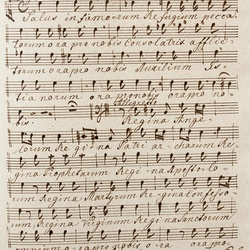 Salus infirmorum Refugium pecca
torum ora pro nobis Consolatrix afflic
torum ora pro nobis Auxilium
tianorum ora pro nobis ora pro no
bis. Allegretto Regina Ange
lorum Regina Patriarcharum Re
gina Prophetarum Regina Aposto lo
rum Regina Martyrum Regina Confesso
rum Regina Virginum Regina Sanctorum
omnium ora pro nobis ora ora pro